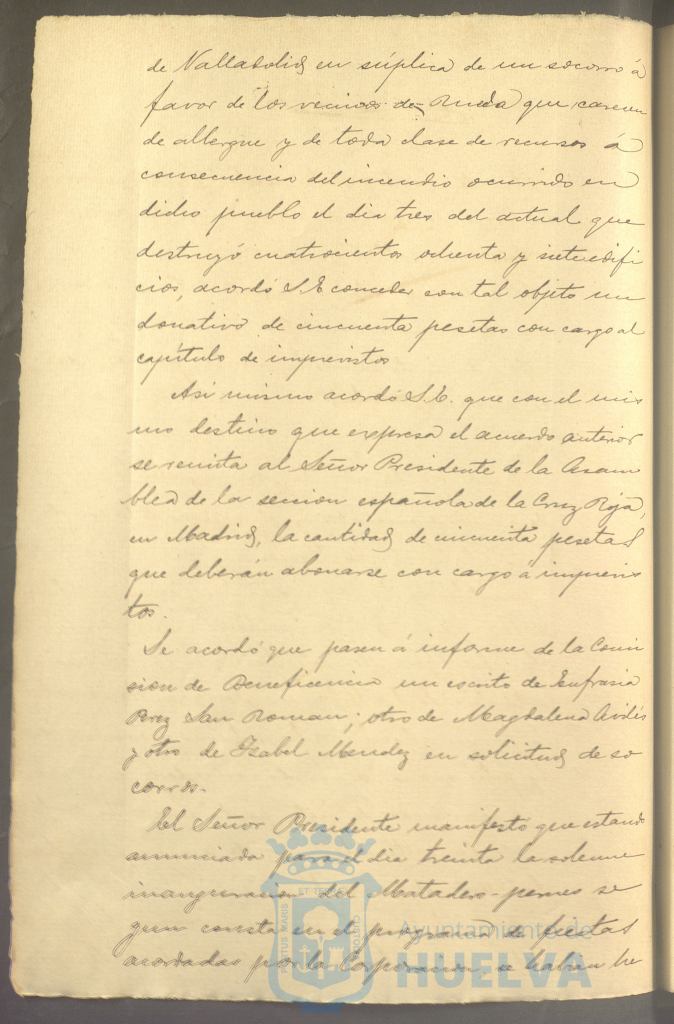 de Valladolid en súplica de un socorro á
favor de los vecinos de Rueda que carecen
de albergue y de toda clase de recursos á
consecuencia del incendio ocurrido en
dicho pueblo el dia tres del actual que
destruyó cuatrocientos ochenta y siete edifi
cios, acordó S.E. conceder con tal objeto un
donativo de cincuenta pesetas con cargo al
capítulo de imprevistos
Asi mismo acordó S.E. que con el mis
mo destino que expresa el acuerdo anterior
se remita al Señor Presidente de la Asam
blea de la seccion española de la Cruz Roja,
en Madrid, la cantidad de cincuenta pesetas
que deberán abonarse con cargo á imprevis
tos.
Se acordó que pasen á informe de la Comi
sion de Beneficencia un escrito de Eufrasia
Perez San Roman; otro de Magdalena Avilés
y otro de Isabel Mendez en solicitud de so
corros.
El Señor Presidente manifestó que estando
anunciada para el dia treinta la solemne
inauguracion del Matadero- se
gun consta en el programa de fiestas
acordadas por la Corporacion, se habian he
Ayuntamiento de
HUELVA